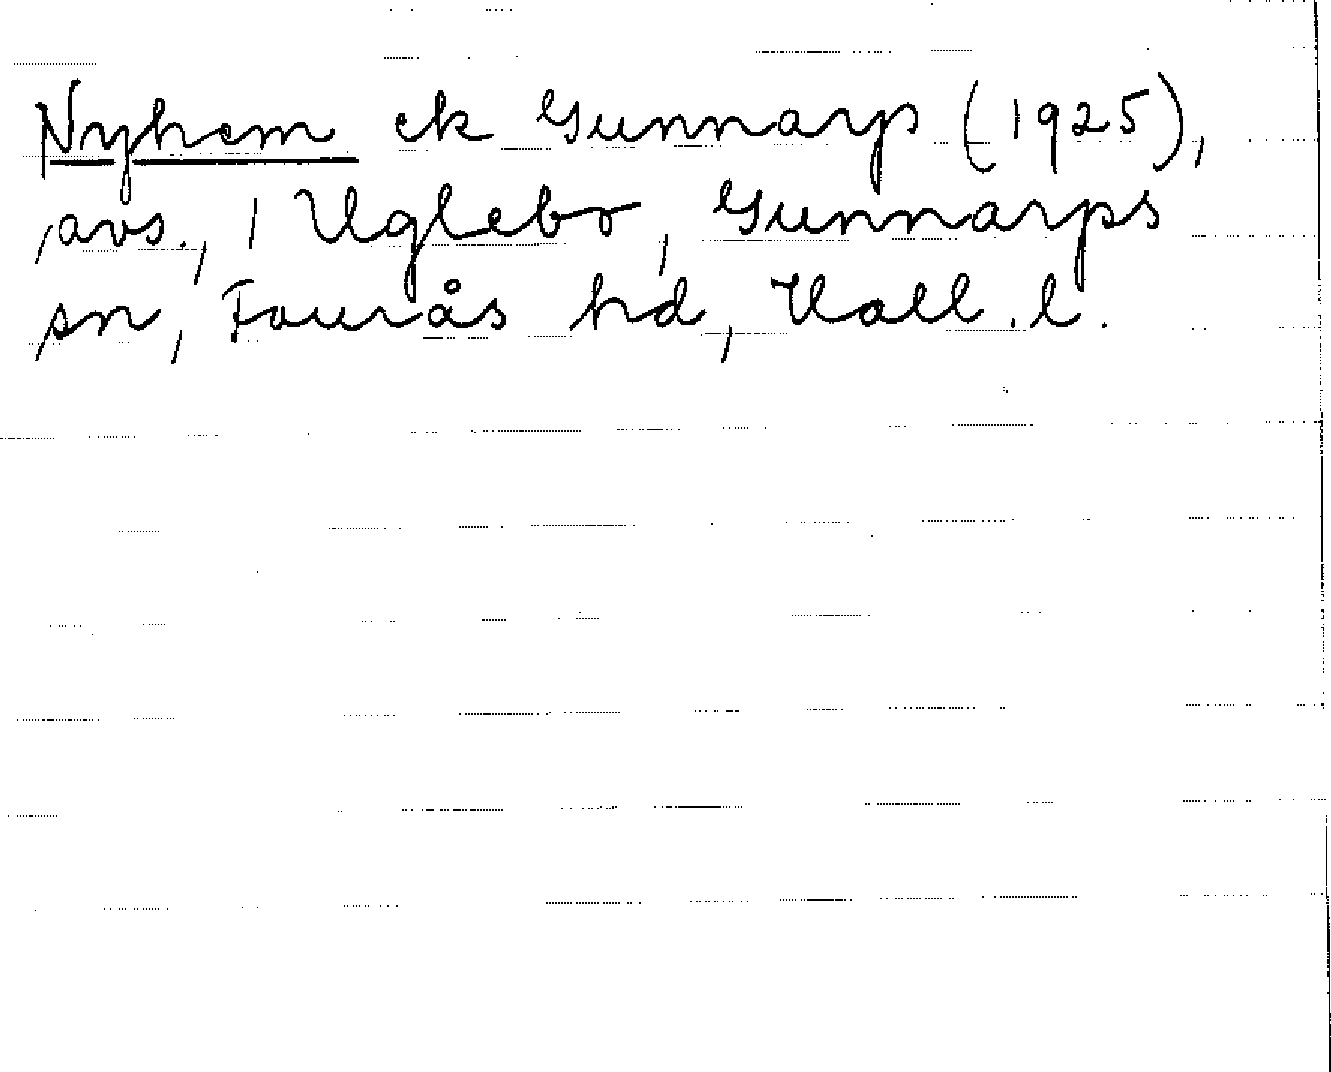 Nyhem ek Gunnarp (1925),
avs., 1 Uglebo, Gunnarps
sn, Faurås hd, Hall. l.